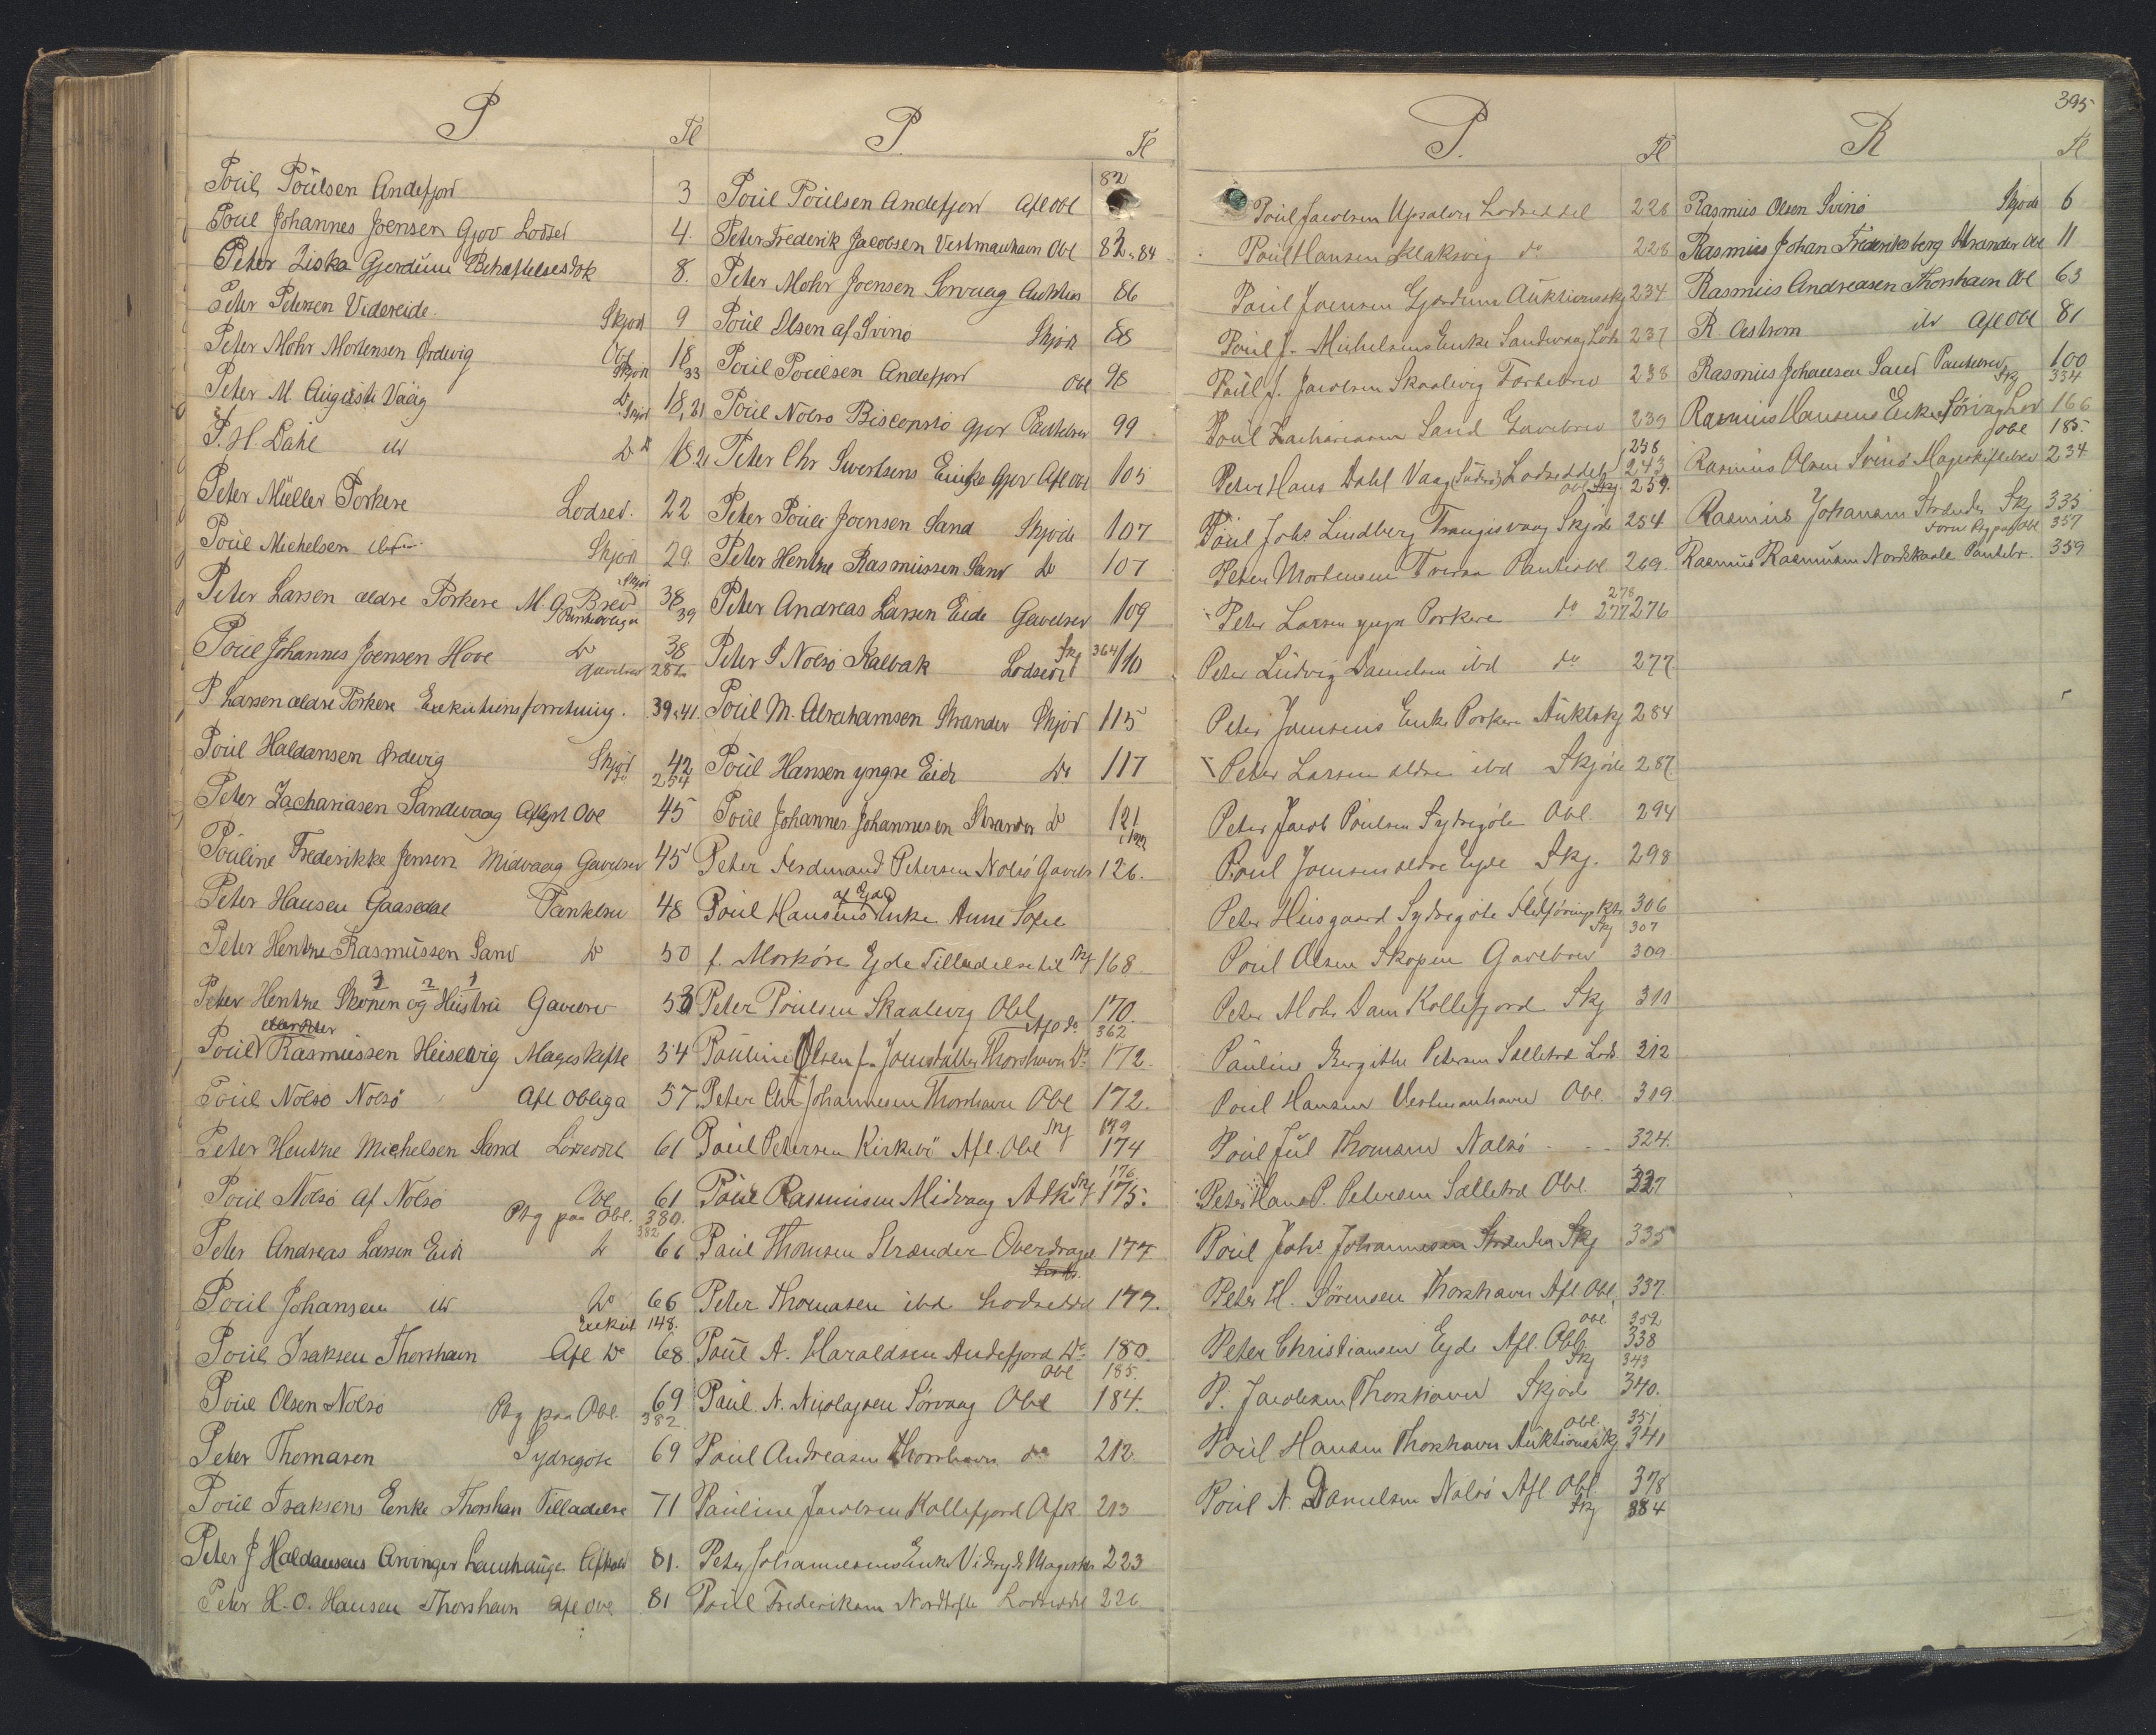 395
P
Fl
Poul Poulsen Andefjord 3
Poul Johannes Joensen Gjov Lodsed 4.
Peter Ziska Gjerdum 8.
Peter Petersen Videreide. Skjød 9
Peter Mohr Mortensen Ørdevig Obl 18
Skjød 33
Peter M. Auguste Vaag Do Skjød 18, 21
P. H. Dahl Do 18 21
Peter Müller Porkere Lodsed. 22
Poul Michelsen Skjød 29.
Skjød
Peter Larsen ældre Porkere M. G. Brev 38
39
Poul Johannes Joensen Hove Do 38
Gavebrev
P. Larsen ældre Porkere Exekutionsforretning. 39, 41.
Poul Haldansen Ørdevig Skjød 42
254
Peter Zachariasen Sandevaag Aflyst Obl 45
Pouline Frederikke Jensen Midvaag Gavebrev 45
Peter Hansen Gaasedal Pantebrev 48
Peter Hentze Rasmussen Sand Do 50
3 2 1
Peter Hentze Skopen og Hustru Gavebrev 53
Poul Rasmussen Magesk 54
Poul Nolsø Nolsø Afl Obliga 57
Peter Hentze Michelsen Sand Lodseddel 61
Poul Nolsø af Nolsø Obl 61
Ptg paa Obl. 380.
382
Peter Andreas Larsen Eide Do 66
Poul Johansen Do 66
Exekut 148.
Poul Isaksen Thorshavn Afl Do 68
Poul Olsen Nolsø 69
Ptg paa Obl. 382
Peter Thomasen Sydregøte 69
Poul Isaksens Enke Thorshavn Tilladelse 71
Peter J Haldansens Arvinger 81.
Peter H. O. Hansen Thorshavn Afl Obl 81
P.
Fl
82
Poul Poulsen Andefjord Afl Obl
Peter Frederik Jacobsen Vestmanhavn Obl 82, 84
Peter Mohr Joensen Sørvaag 86
Poul Olsen af Svinø Skjød 88
Poul Poulsen Andefjord Obl 98
Poul Nolsø Biskopstø Gjov Pantebrev 99
Peter Chr Sivertsens Enke Gjov Afl Obl 105
Peter Poul Joensen Sand Skjøde 107
Peter Hentze Rasmussen Sand Do 107
Peter Andreas Larsen Eide Gavebrev 109
Skj 364
Peter P Nolsø Kalbak Lodsed 110
Poul M. Abrahamsen Strander Skjød 115
Poul Hansen yngre Eide Do 117
Poul Johannes Johannesen Strander Do 121
Peter Ferdinand Petersen Nolsø Gavebr 126.
af Ejde
Poul Hansens Enke Anne Sofie
f. Morkøre Ejde Tilladelse til Skj 168.
Peter Poulsen Skaalevig Obl 170.
Afl do 362
Pauline Olsen f. Thorshavn Do 172.
Peter Chr Johannesen Thorshavn Obl 172.
Skj 179
Poul Petersen Kirkebø Afl. Obl 174
Skj 176
Poul Rasmussen Midvaag Afk 175.
Poul Thomsen Strænder Overdragel 177.
Peter Thomasen ibd Lodseddel 177.
Poul A. Haraldsen Andefjord Do 180.
Obl 185.
Poul N. Nicolajsen Sørvaag Obl 184.
Poul Andreasen Thorshavn do 212.
Pauline Jacobsen Kollefjord Afk 213
Peter Johannesens Enke Viderejde Mageskr 223
Poul Frederiksen Nordtofte Lodseddel 226
P.
Fl
Poul Jacobsen Lodseddel 228
Poul Hansen Klaksvig do 228
Poul Joensen Gjerdum Auktionsskj 234
Poul J. Michelsens Enke Sandevaag Lods 237
Poul J. Jacobsen Skaalevig 238
Poul Zachariasen Sand Gavebrev 239
238
Peter Hans Dahl Vaag (Suderø) Lodseddel 243
Obl Skj 259.
Poul Johs Lindberg Trangisvaag Skjøde 254
Peter Mortensen Tveraa Panteobl 269.
278
Peter Larsen yngre Porkere do 277 276
Peter Ludvig Danielsen ibd do 277
Peter Joensens Enke Porkere Auktskj 284
Peter Larsen ældre ibd Skjøde 287
Peter Jacob Poulsen Sydregøte Obl. 294
Poul Joensen ældre Ejde Skj. 298
Peter Husgaard Sydregøte 306
Skj 307
Poul Olsen Skopen Gavebrev 309
Peter Mohr Dam Kollefjord Skj 311
Pauline Bergithe Petersen Selletrød Lods 312
Poul Hansen Vestmanhavn Obl. 319
Poul Jul Thomsen Nolsø 324.
Peter Hans P. Petersen Selletrød Obl. 327
Poul Johs Johannesen Strender Skj 335
Peter H. Sørensen Thorshavn Afl Obl 337.
Obl. 352
Peter Christiansen Ejde Afl. Obl. 338
Skj 343
P. Jacobsen Thorshavn Skjøde 340.
Obl. 351
Poul Hansen Thorshavn Auktionsskj 341
Poul N. Danielsen Nolsø Afl Obl. 378
Skj 384
R
Fl
Rasmus Olsen Svinø Skjøde 6
Rasmus Johan Frederiksberg Strander Obl 11
Rasmus Andreasen Thorshavn Obl 63
R Aestrom Afl Obl 81
Rasmus Johansen Sand Pantebrev 100
Skj 334
Rasmus Hansens Enke Sørvaag Lod 166
Obl 185.
Rasmus Olsen Svinø Mageskiftebrev 234
Rasmus Johansen Strender Skj 335
Obl 357
Rasmus Rasmussen Nordskaale Pantebr. 359